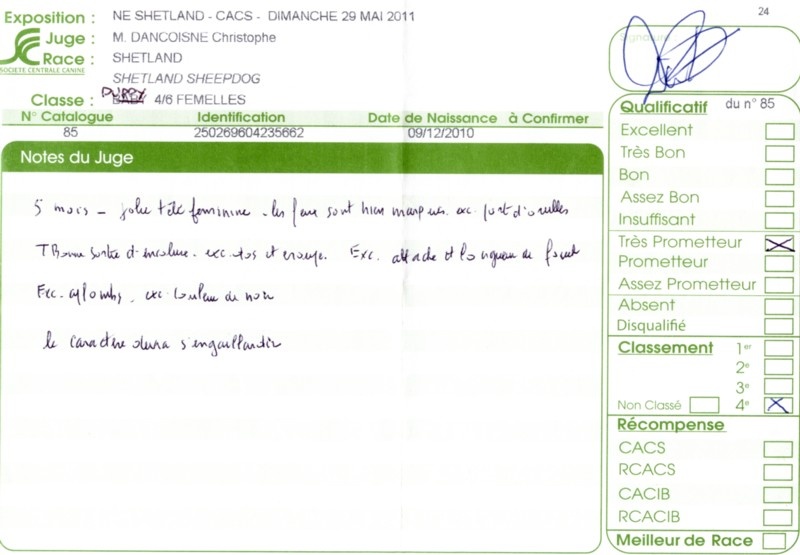 24
Exposition : NE SHETLAND - CACS - DIMANCHE 29 MAI 2011
Juge : M. DANCOISNE Christophe
Race : SHETLAND
SOCIETE CENTRALE CANINE
SHETLAND SHEEPDOG
Classe : PUPPY BABY 4/6 FEMELLES
N° Catalogue Identification Date de Naissance à Confirmer
85 250269604235662 09/12/2010
Notes du Juge
5 mois - jolie tête feminine - les faces sont bien marquées. exc. port d'oreilles
T Bonne sortie d'encolure. exc. dos et croupe. Exc. attache et longueur de fouet
Exc. aplombs, exc couleur de noir
le caractère devra s'engaillardir
Signature
Qualificatif du n° 85
Excellent
Très Bon
Bon
Assez Bon
Insuffisant
Très Prometteur X
Prometteur
Assez Prometteur
Absent
Disqualifié
Classement 1er
2e
3e
Non Classé 4e X
Récompense
CACS
RCACS
CACIB
RCACIB
Meilleur de Race